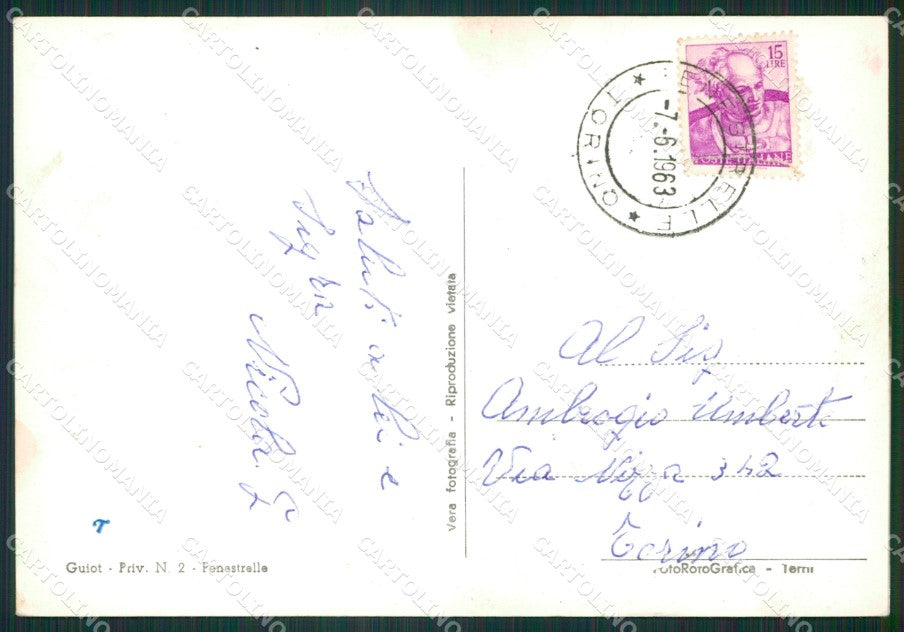 Saluti a lei e
Sig.ra
Nicola
Vera fotografia - Riproduzione vietata
Guiot - Priv. N. 2 - Fenestrelle
15
LIRE
POSTE ITALIANE
FENESTRELLE
* TORINO *
-7.-6.1963
Al Sig
Ambrogio Umberto
Via Nizza 342
Torino
FotoRotoGrafica - Terni
CARTOLINOMANIA